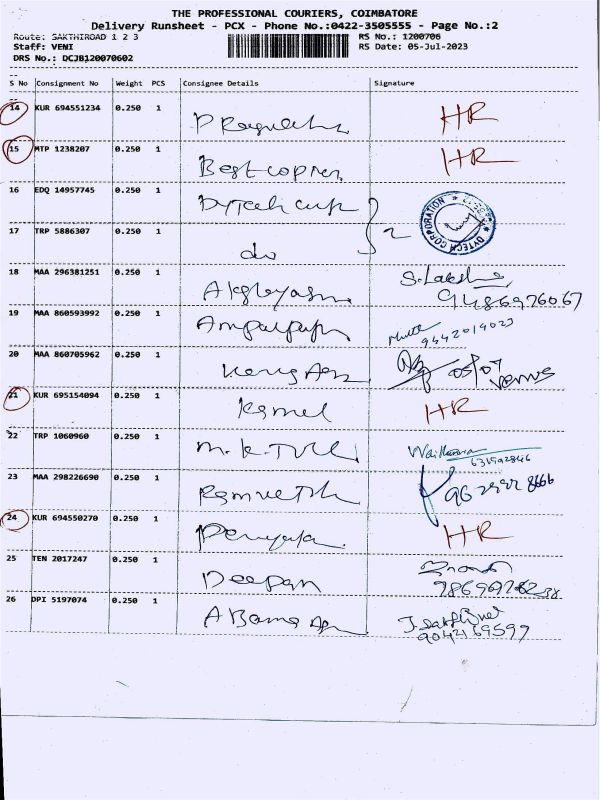 THE PROFESSIONAL COURIERS, COIMBATORE
Delivery Runsheet - PCX - Phone No.:0422-3505555 - Page No.:2
Route: SAKTHIROAD 1 2 3 RS No.: 1200706
Staff: VENI RS Date: 05-Jul-2023
DRS No.: DCJB120070602
S No Consignment No Weight PCS Consignee Details Signature
14 KUR 694551234 0.250 1 HR
15 MTP 1238207 0.250 1 HR
16 EDQ 14957745 0.250 1 2 DYTECH CORPORATION
17 TRP 5886307 0.250 1 do
18 MAA 296381251 0.250 1 S. Lakshm
9486976067
19 MAA 860593992 0.250 1
9442019023
20 MAA 860705962 0.250 1 05/07
21 KUR 695154094 0.250 1 Kamal HR
22 TRP 1060960 0.250 1 M.K. TULI
23 MAA 298226690 0.250 1
24 KUR 694550270 0.250 1 HR
25 TEN 2017247 0.250 1 Deepan
26 DPI 5197074 0.250 1
9042169597